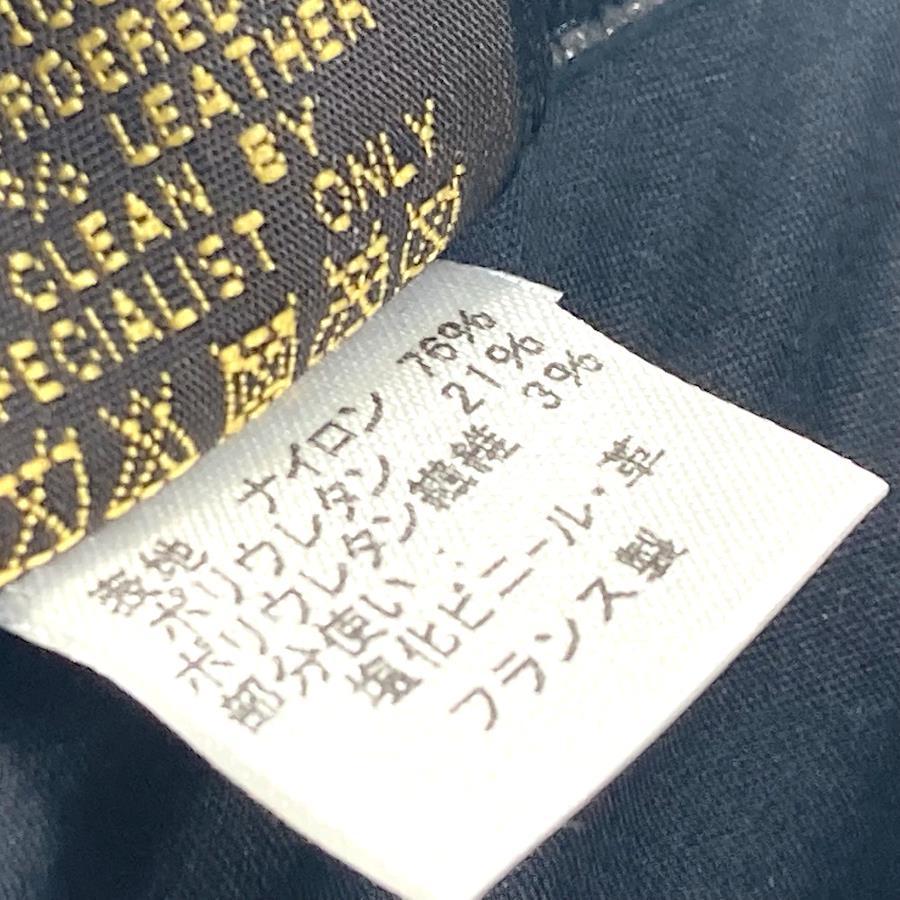 % LEATHER
CLEAN BY
ONLY
表地 ナイロン 76%
ポリウレタン 21%
ポリウレタン繊維 3%
部分使い
塩化ビニール・革
フランス製